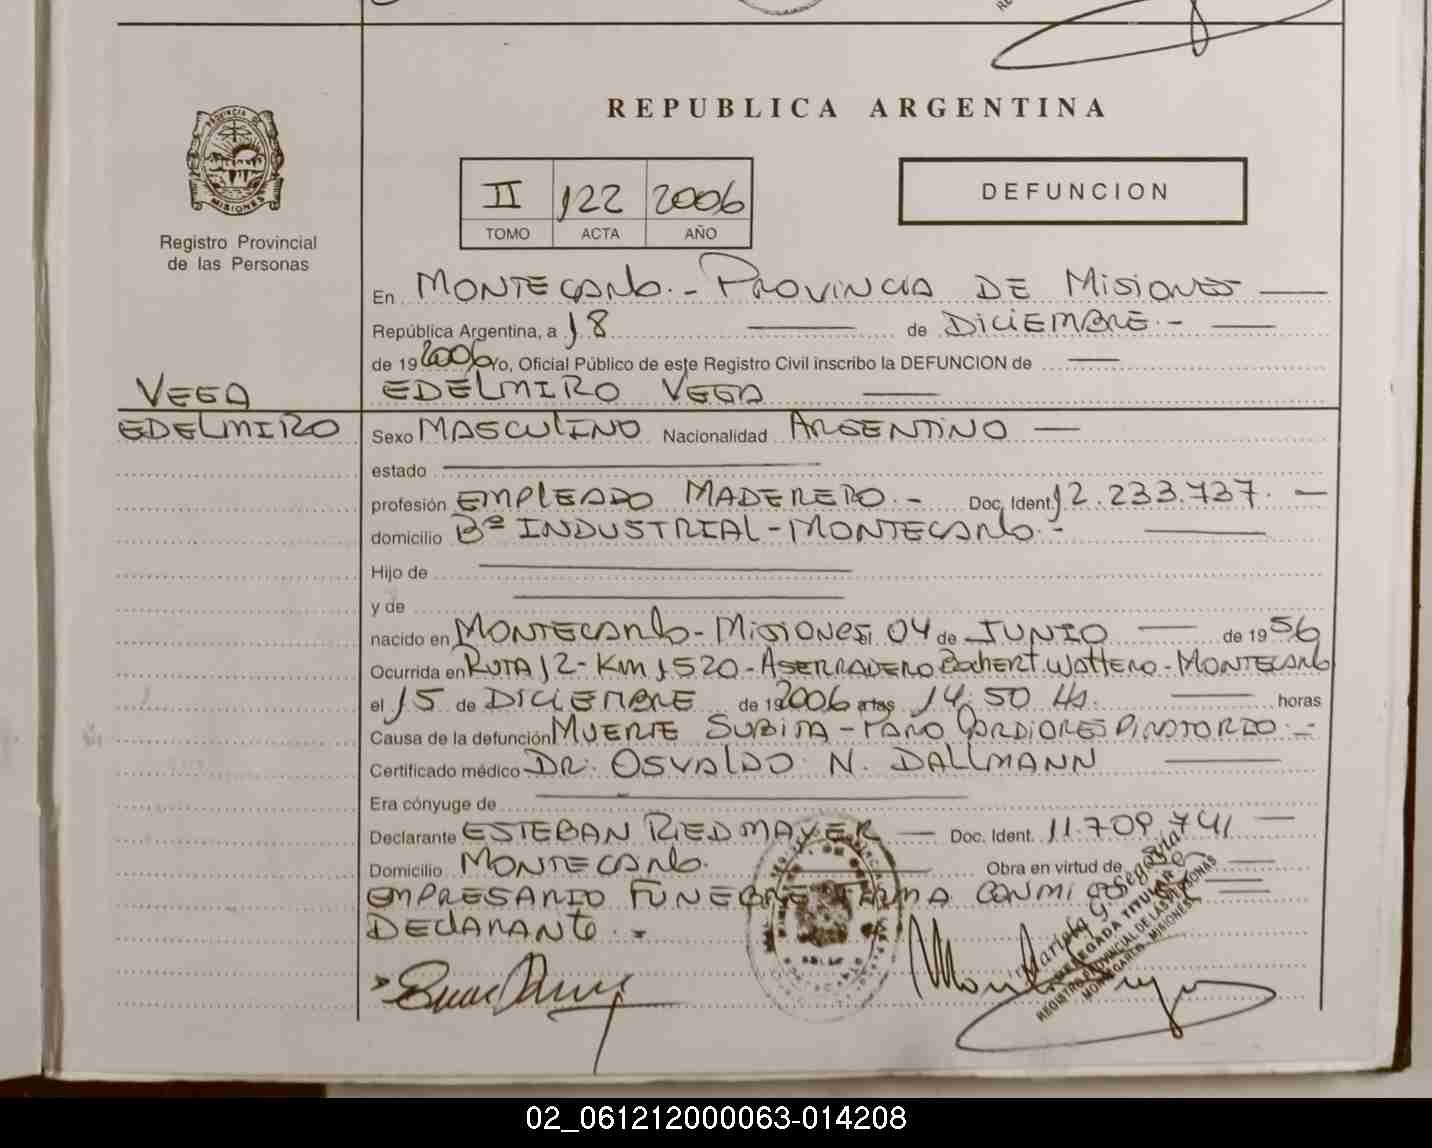 REPUBLICA ARGENTINA
PROVINCIA DE
MISIONES
Registro Provincial
de las Personas
II 122 2006
TOMO ACTA AÑO
DEFUNCION
En MONTECARLO.- PROVINCIA DE MISIONES
República Argentina, a 18 de DICIEMBRE.-
de 19 2006 Yo, Oficial Público de este Registro Civil inscribo la DEFUNCION de
VEGA
EDELMIRO
EDELMIRO VEGA
Sexo MASCULINO Nacionalidad ARGENTINO
estado
profesión EMPLEADO MADERERO.- Doc. Ident. 12.233.737.
domicilio Bº INDUSTRIAL-MONTECARLO.-
Hijo de
y de
nacido en MONTECARLO-MISIONES el 04 de JUNIO de 1956
Ocurrida en RUTA 12-KM 1520-ASERRADERO MONTECARLO
el 15 de DICIEMBRE de 19 2006 a las 14:50 Hs. horas
Causa de la defunción MUERTE SUBITA-PARO CARDIORESPIRATORIO.-
Certificado médico DR. OSVALDO N. DALLMANN
Era cónyuge de
Declarante ESTEBAN RIEDMAYER Doc. Ident. 11.709.741
Domicilio MONTECARLO. Obra en virtud de
EMPRESARIO FUNEBRE FIRMA CONMIGO
DECLARANTE.-
DELEGADA TITULAR
REGISTRO PROVINCIAL DE LAS PERSONAS
MONTECARLO - MISIONES
02_061212000063-014208